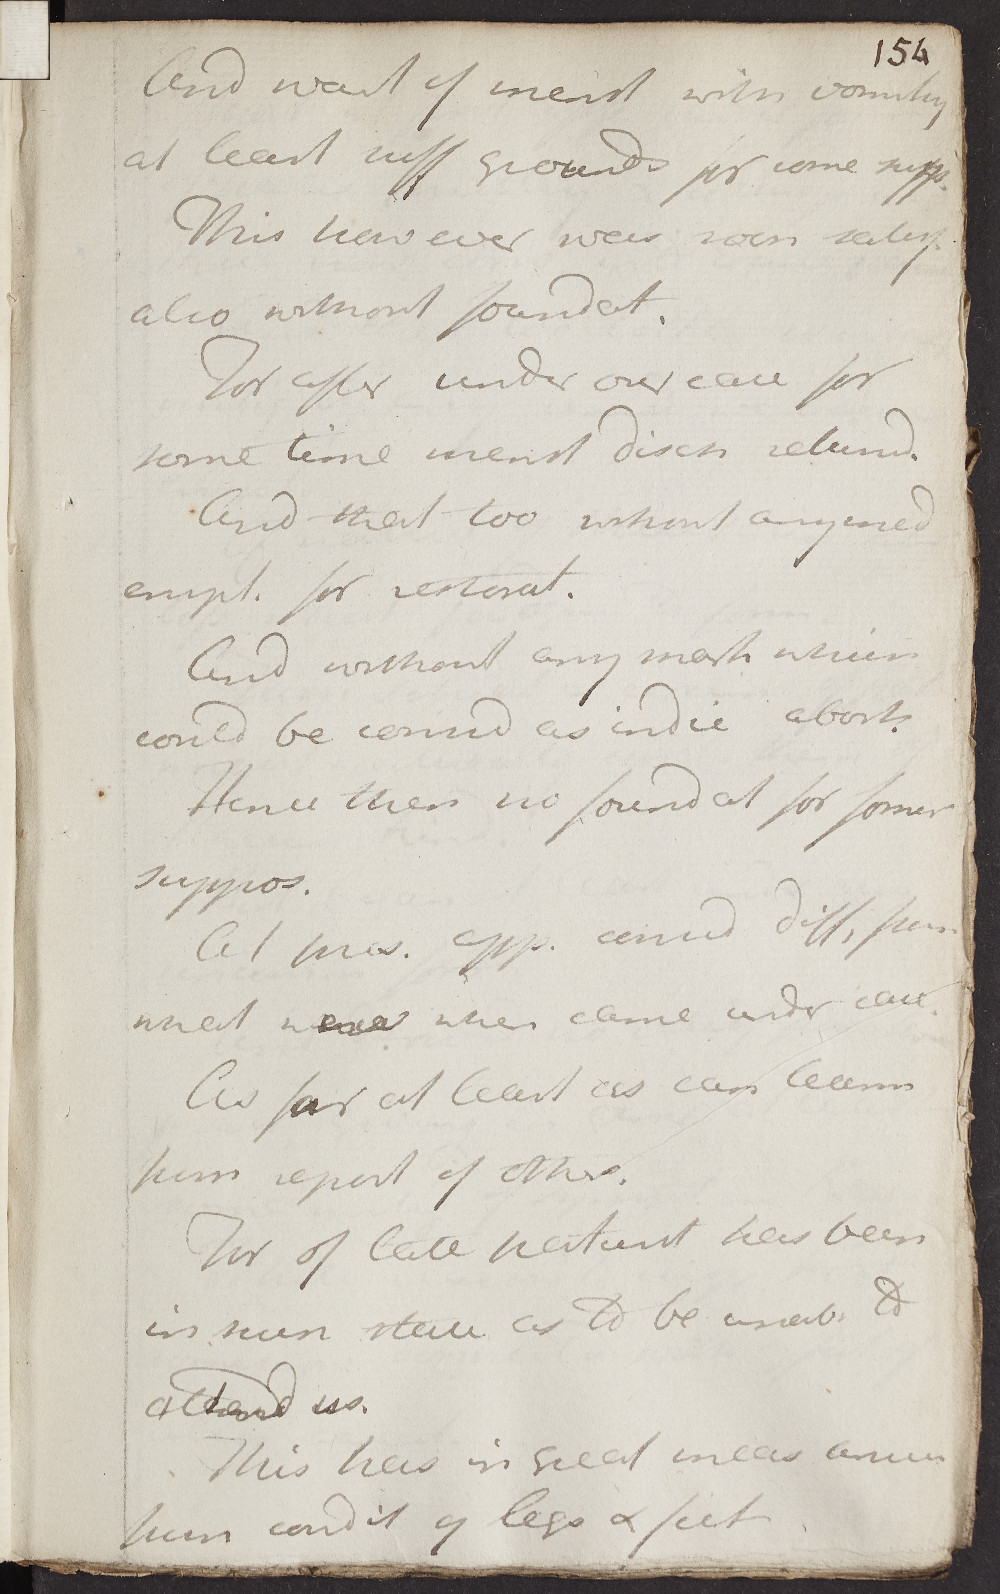 154
And want of menst with vomiting
at least suff grounds for some supp.
This however was soon satisf.
also without foundat.
For after under our care for
some time menst disch returnd.
And that too without any med
empl. for restorat.
And without any mark which
could be consid as indic abort.
Hence then no foundat for former
suppos.
At pres. app. consid diff, from
what were when came under care.
As far at least as can learn
from report of others.
For of late patient has been
in such state as to be unab. to
attend us.
This has in great meas arisen
from condit of legs & feet